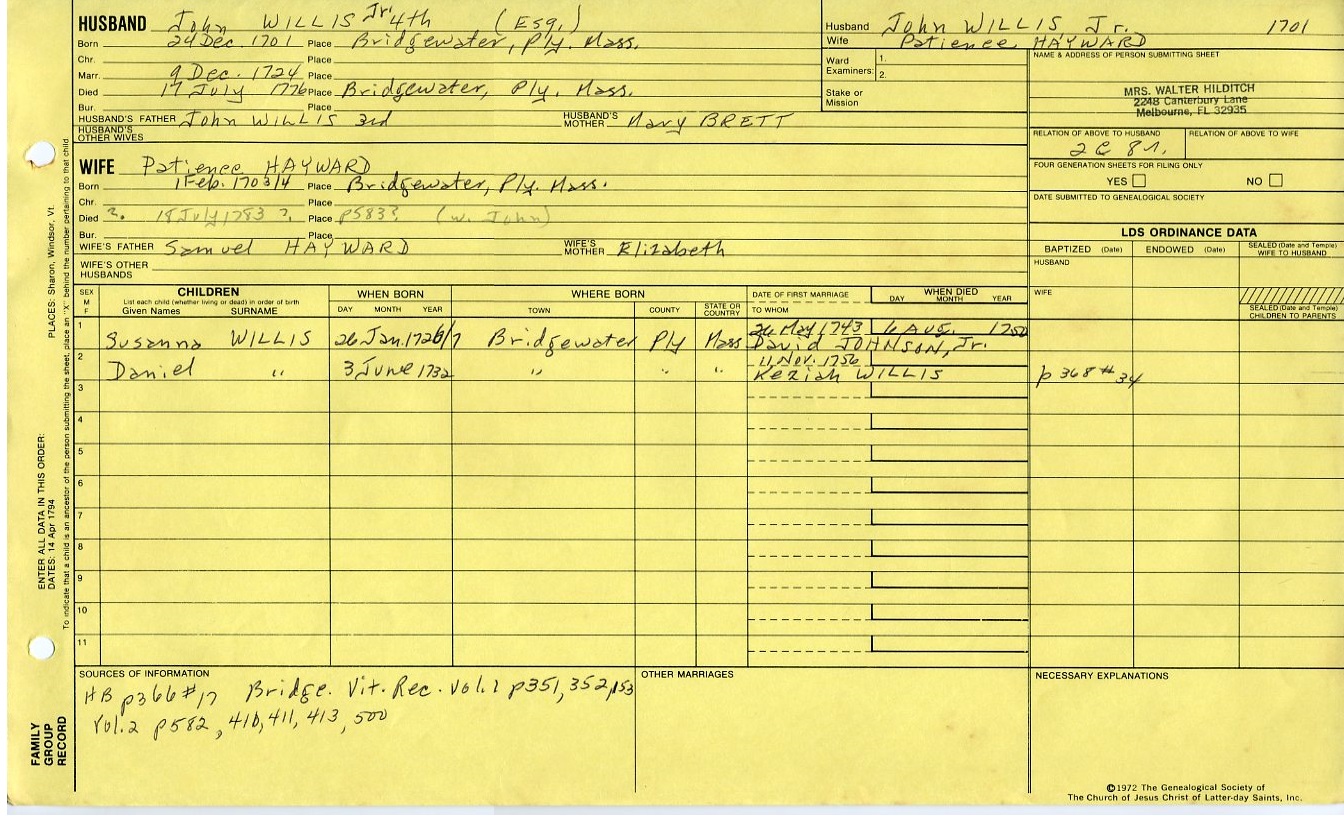 HUSBAND John WILLIS Jr. 4th (Esq.)
Born 24 Dec. 1701 Place Bridgewater, Ply. Mass.
Chr. Place
Marr. 9 Dec. 1724 Place
Died 17 July 1776 Place Bridgewater, Ply. Mass.
Bur. Place
HUSBAND'S FATHER John WILLIS 3rd HUSBAND'S MOTHER Mary BRETT
HUSBAND'S OTHER WIVES
Husband John WILLIS Jr. 1701
Wife Patience HAYWARD
Ward Examiners: 1.
2.
Stake or Mission
NAME & ADDRESS OF PERSON SUBMITTING SHEET
MRS. WALTER HILDITCH
2248 Canterbury Lane
Melbourne, FL 32935
RELATION OF ABOVE TO HUSBAND RELATION OF ABOVE TO WIFE
2C 8r.
FOUR GENERATION SHEETS FOR FILING ONLY
YES NO
DATE SUBMITTED TO GENEALOGICAL SOCIETY
WIFE Patience HAYWARD
Born 1 Feb. 1703/4 Place Bridgewater, Ply. Mass.
Chr. Place
Died ?. 18 July 1783 ?. Place p583? (w. John)
Bur. Place
WIFE'S FATHER Samuel HAYWARD WIFE'S MOTHER Elizabeth
WIFE'S OTHER HUSBANDS
LDS ORDINANCE DATA
BAPTIZED (Date) ENDOWED (Date) SEALED (Date and Temple) WIFE TO HUSBAND
HUSBAND
WIFE
SEALED (Date and Temple) CHILDREN TO PARENTS
SEX M F
CHILDREN
List each child (whether living or dead) in order of birth
Given Names SURNAME
WHEN BORN
DAY MONTH YEAR
WHERE BORN
TOWN COUNTY STATE OR COUNTRY
DATE OF FIRST MARRIAGE
TO WHOM
WHEN DIED
DAY MONTH YEAR
1 Susanna WILLIS 26 Jan. 1726/7 Bridgewater Ply Mass 26 May 1743 6 Aug. 1750
David JOHNSON, Jr.
2 Daniel " 3 June 1732 " " " 11 Nov. 1756
Keziah WILLIS p 368 #34
3
4
5
6
7
8
9
10
11
SOURCES OF INFORMATION
HB p366 #17 Bridge. Vit. Rec. Vol. 1 p351, 352, 153
Vol. 2 p582, 410, 411, 413, 500
OTHER MARRIAGES
NECESSARY EXPLANATIONS
©1972 The Genealogical Society of
The Church of Jesus Christ of Latter-day Saints, Inc.
FAMILY GROUP RECORD
ENTER ALL DATA IN THIS ORDER:
DATES: 14 Apr 1794
PLACES: Sharon, Windsor, Vt.
To indicate that a child is an ancestor of the person submitting the sheet, place an "X" behind the number pertaining to that child